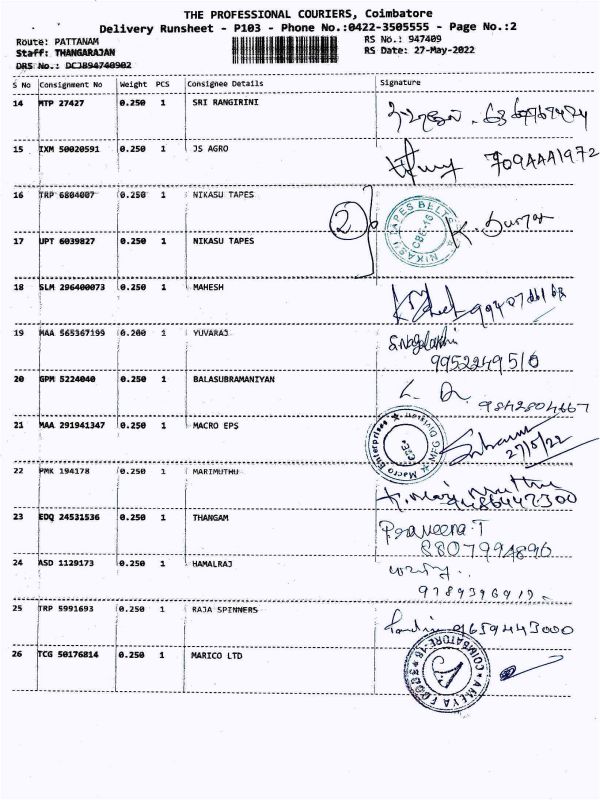 THE PROFESSIONAL COURIERS, Coimbatore
Delivery Runsheet - P103 - Phone No.:0422-3505555 - Page No.:2
Route: PATTANAM RS No.: 947409
Staff: THANGARAJAN RS Date: 27-May-2022
DRS No.: DCJ894740902
S No Consignment No Weight PCS Consignee Details Signature
14 MTP 27427 0.250 1 SRI RANGIRINI
15 IXM 50020591 0.250 1 JS AGRO
16 TRP 6804007 0.250 1 NIKASU TAPES
2 NIKASU TAPES BELTS CBE-16 K.
17 UPT 6039827 0.250 1 NIKASU TAPES
18 SLM 296400073 0.250 1 MAHESH
19 MAA 565367199 0.200 1 YUVARAJ S.Nagalakshi
9952249510
20 GPM 5224040 0.250 1 BALASUBRAMANIYAN
9842804667
21 MAA 291941347 0.250 1 MACRO EPS Macro Enterprises
27/5/22
22 PMK 194178 0.250 1 MARIMUTHU K. Mari Muthu
9486447300
23 EDQ 24531536 0.250 1 THANGAM Praveena.T
8807994896
24 ASD 1129173 0.250 1 HAMALRAJ
25 TRP 5991693 0.250 1 RAJA SPINNERS 9659443000
26 TCG 50176814 0.250 1 MARICO LTD AMEYA FOODS COIMBATORE-16